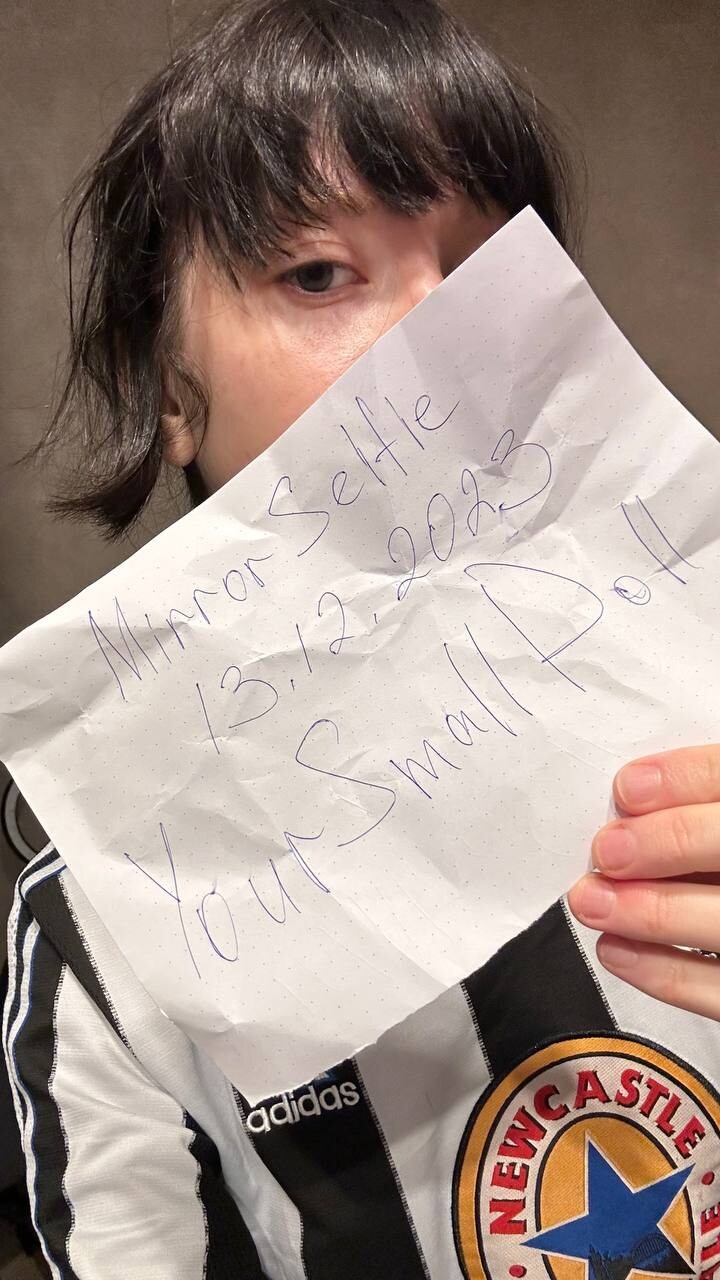 Mirror Selfie
13.12.2023
YourSmallDoll
adidas
NEWCASTLE